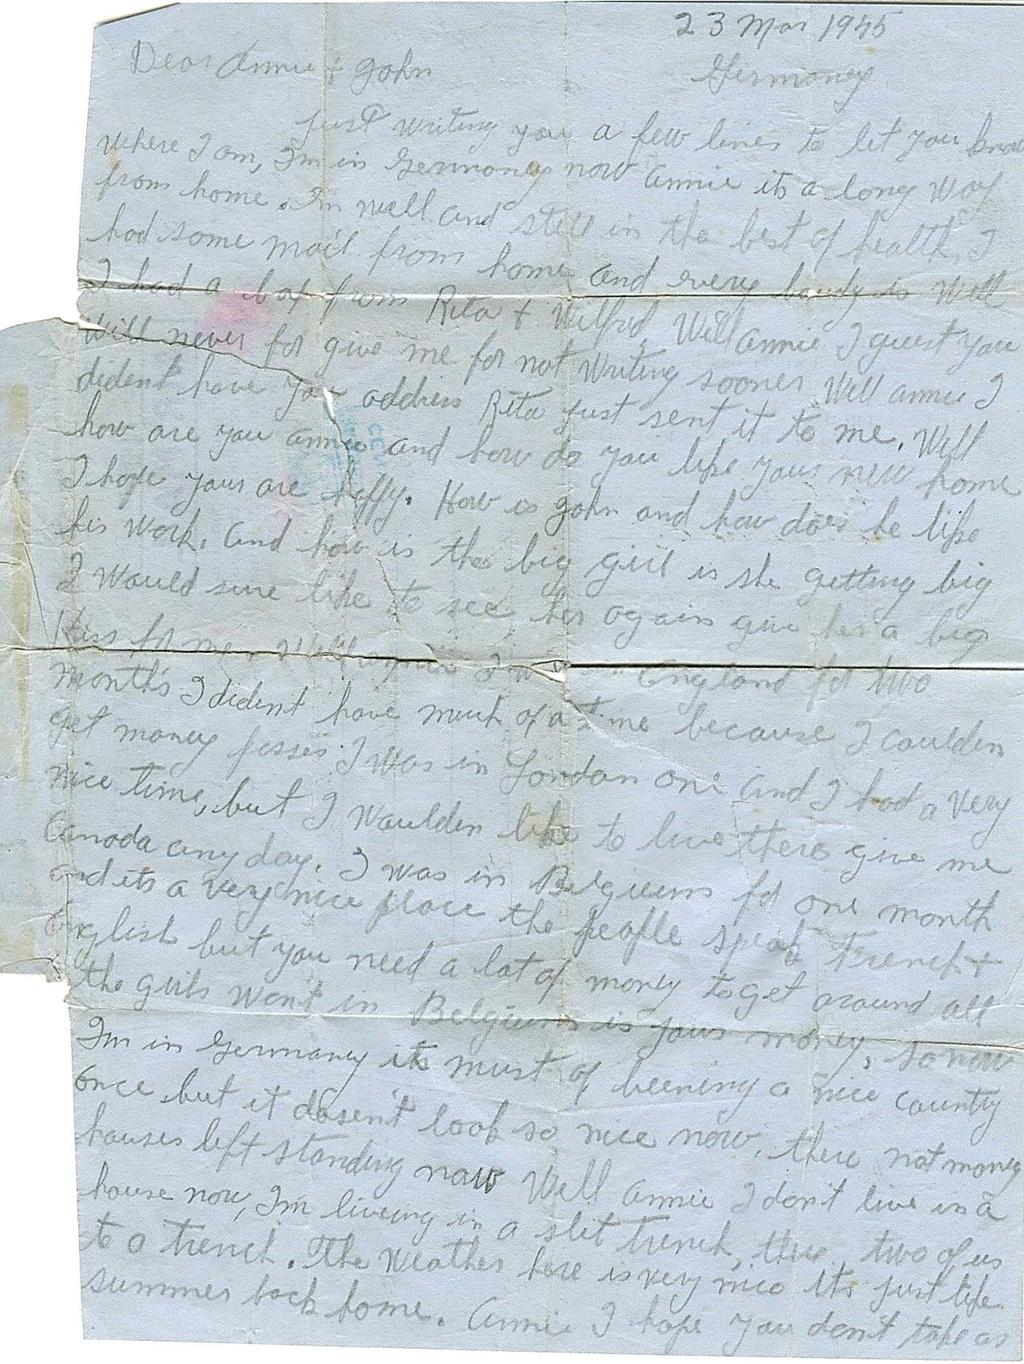 23 Mar 1945
Dear Annie + John
Germoney
Just writing you a few lines to let you know
where I am, I'm in Germoney now Annie its a long way
from home. I'm well and still in the best of health, I
had some mail from home and every baudy is well
I had a box from Rita + Wilfred, Well Annie I guest you
will never for give me for not writing sooner, Well Annie I
dident have your address Rita just sent it to me. Well
how are you Annie and how do you like your new home
I hope your are happy. How is John and how does he like
his work, and how is the big girl is she getting big
I would sure like to see her again give her a big
Kiss for me. Well Annie I England for two
months I dident have much of a time because I coulden
get money passes. I was in London one and I had a very
nice time, but I woulden like to live there give me
Canada any day. I was in Belgieum for one month
and its a very nice place the people speak French +
English but you need a lot of money to get around all
the girls want in Belgieum is your money, so now
I'm in Germany its must of beening a nice country
once but it dosen't look so nice now. there not money
houses left standing now Well Annie I don't live in a
house now, I'm liveing in a slit trench, there two of us
to a trench. The Weather here is very nice its just like
summer back home. Annie I hope you don't take as